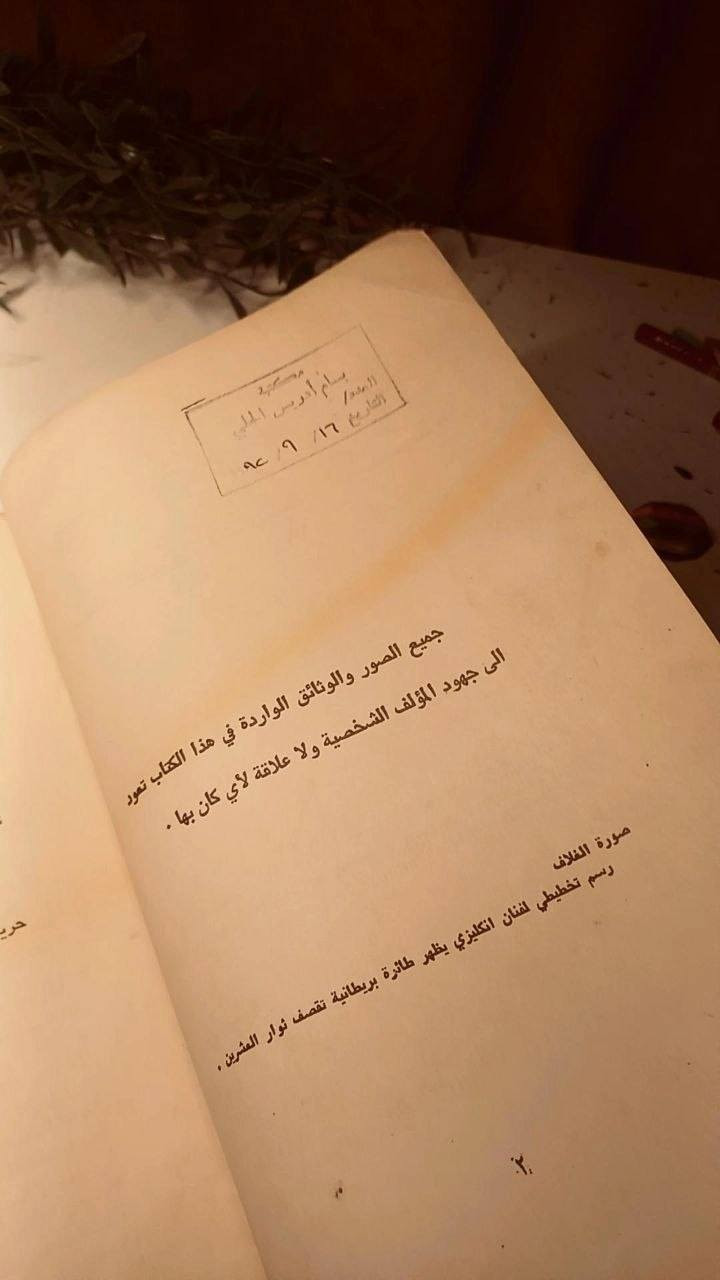 مكتبة
بسام ادريس الحلي
العدد/
التاريخ ١٦/ ٩/ ٩٢
جميع الصور والوثائق الواردة في هذا الكتاب تعود
الى جهود المؤلف الشخصية ولا علاقة لأي كان بها .
صورة الغلاف
رسم تخطيطي لفنان انكليزي يظهر طائرة بريطانية تقصف ثوار العشرين .
٢